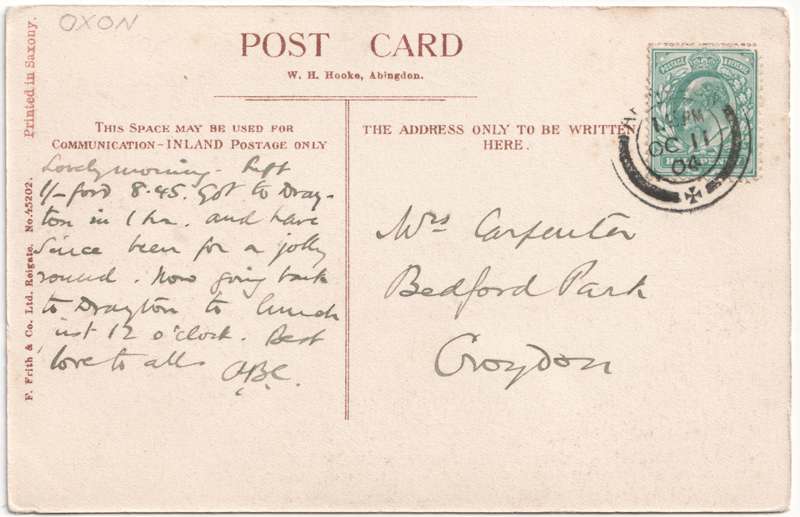 OXON
Printed in Saxony.
POST CARD
W. H. Hooke, Abingdon.
THIS SPACE MAY BE USED FOR
COMMUNICATION – INLAND POSTAGE ONLY
THE ADDRESS ONLY TO BE WRITTEN
HERE.
F. Frith & Co. Ltd. Reigate. No. 45202.
Lovely morning. Left
1/-ford 8.45. Got to Dray-
ton in 1 hr. and have
since been for a jolly
round. Now going back
to Drayton to lunch
just 12 o'clock. Best
love to all
Mrs Carpenter
Bedford Park
Croydon
POSTAGE REVENUE
OC 11
04